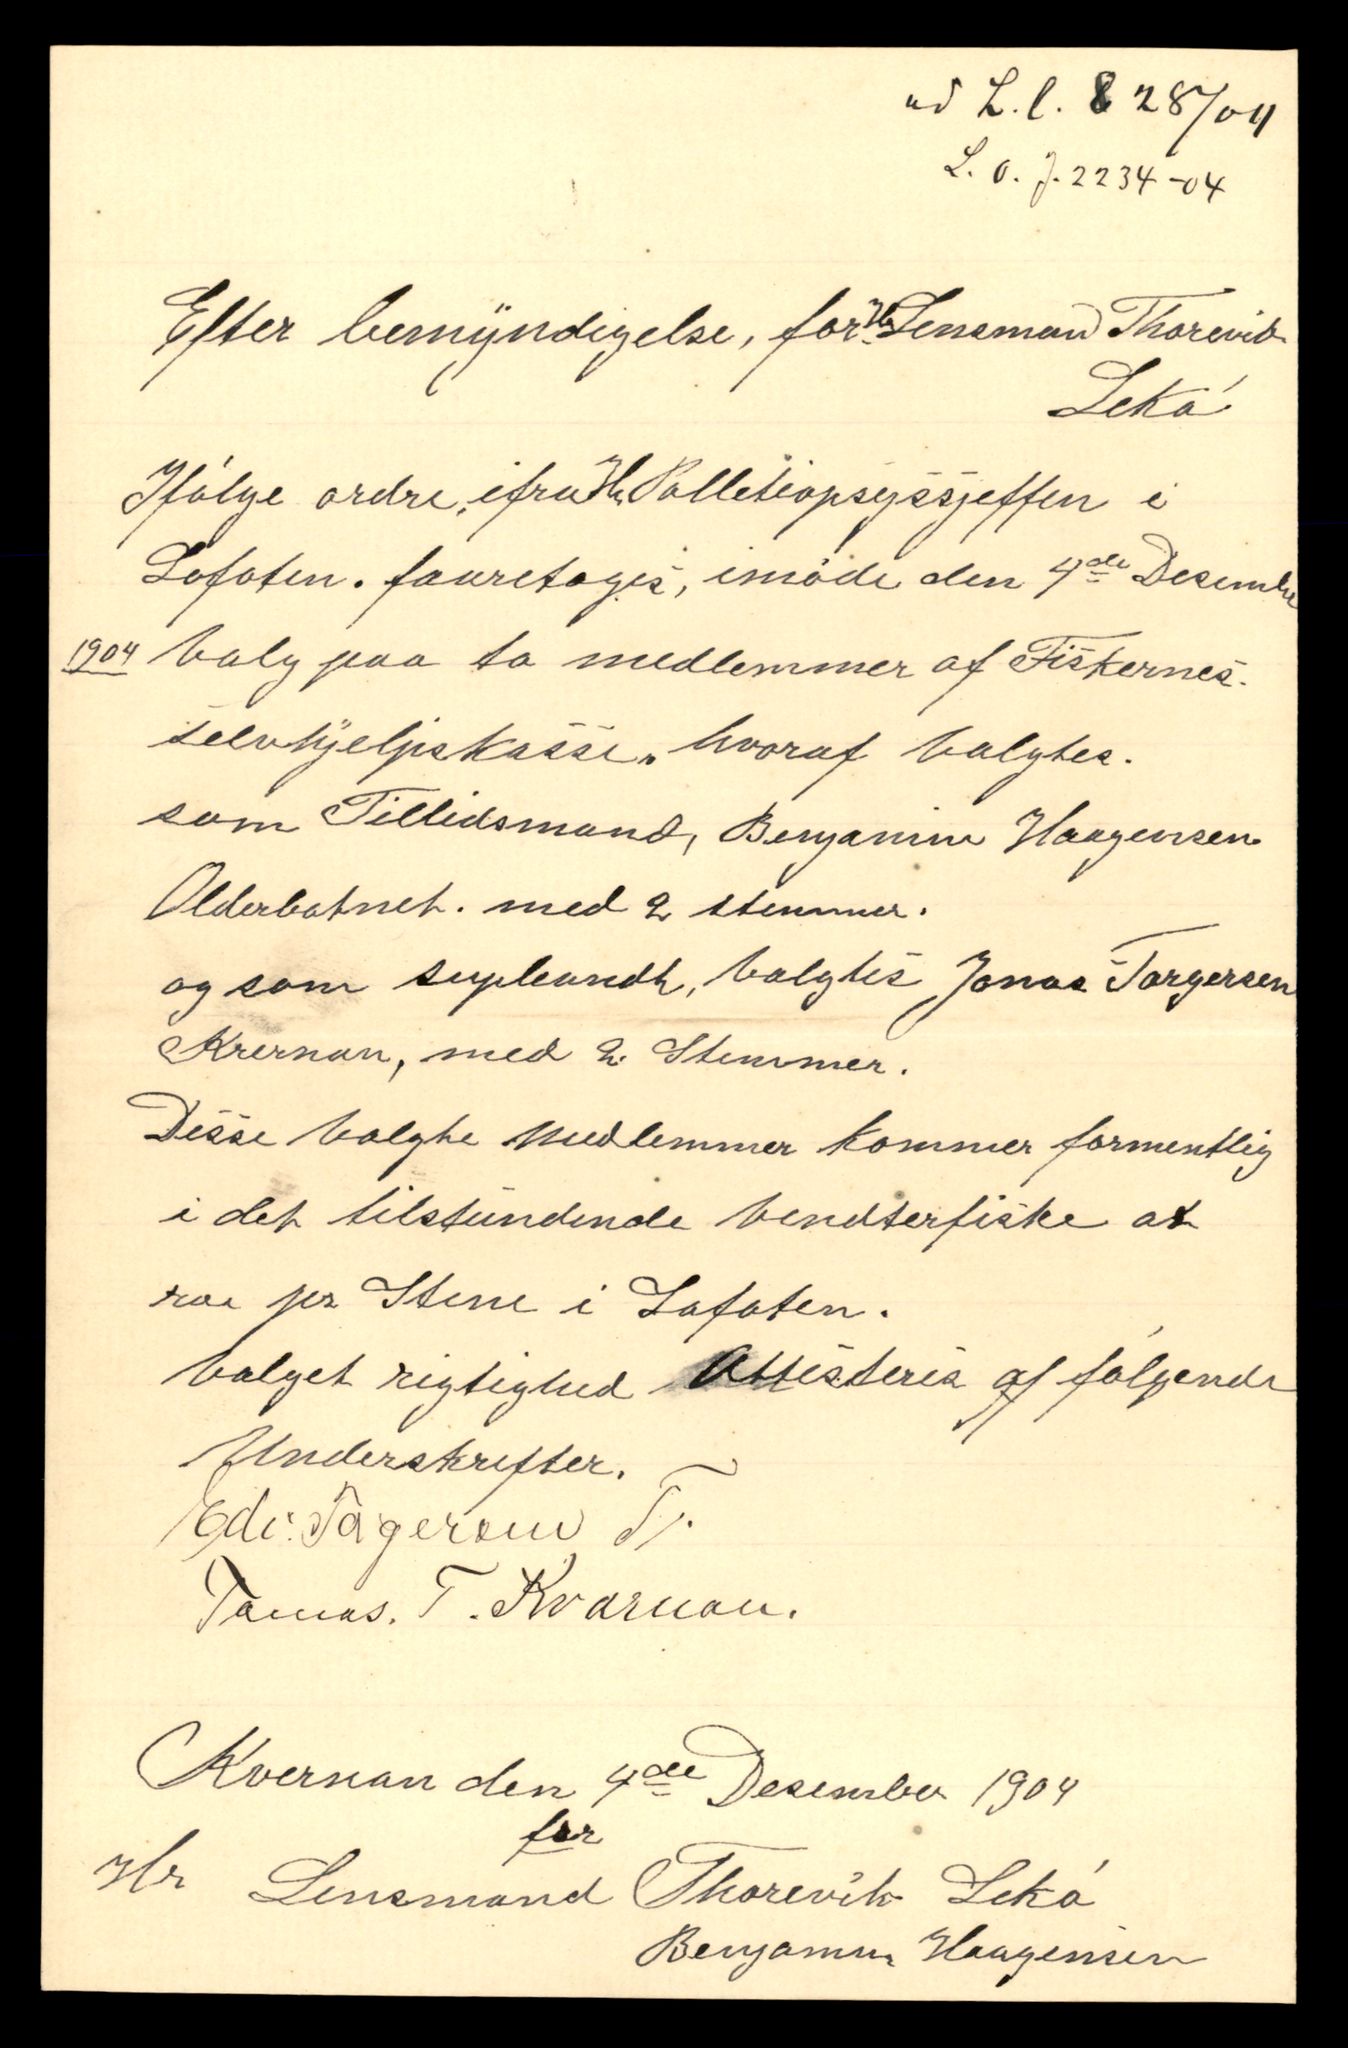 ad L.l. 828/04
L. O. J. 2234-04
Efter bemÿndigelse, for Hr. Lensmand Thorevik
Lekø
Ifølge ordre, ifra Hr Pollitiopsyssjeffen i
Lofoten. fauretages, imøde den 4de Desember
1904 valg paa to medlemmer af Fiskernes.
selvhjelpskasse„ hvoraf valgtes.
som Tillidsmand, Benjamin Haagensen
Olderbotnet. med 2 stemmer.
og som supleandt, valgtes Jonas Torgersen
Kvernan, med 2 Stemmer.
Disse valgte Medlemmer kommer formentlig
i det tilstundende vendterfiske at
roe pr Stene i Lofoten.
valget rigtighed Attisteres af følgende
Underskrifter.
Edv. Togersen T.
Tomas. T. Kvarnan.
Kvernan den 4de Desember 1904
for
Hr Lensmand Thorevik Lekø
Benjamin Haagensen